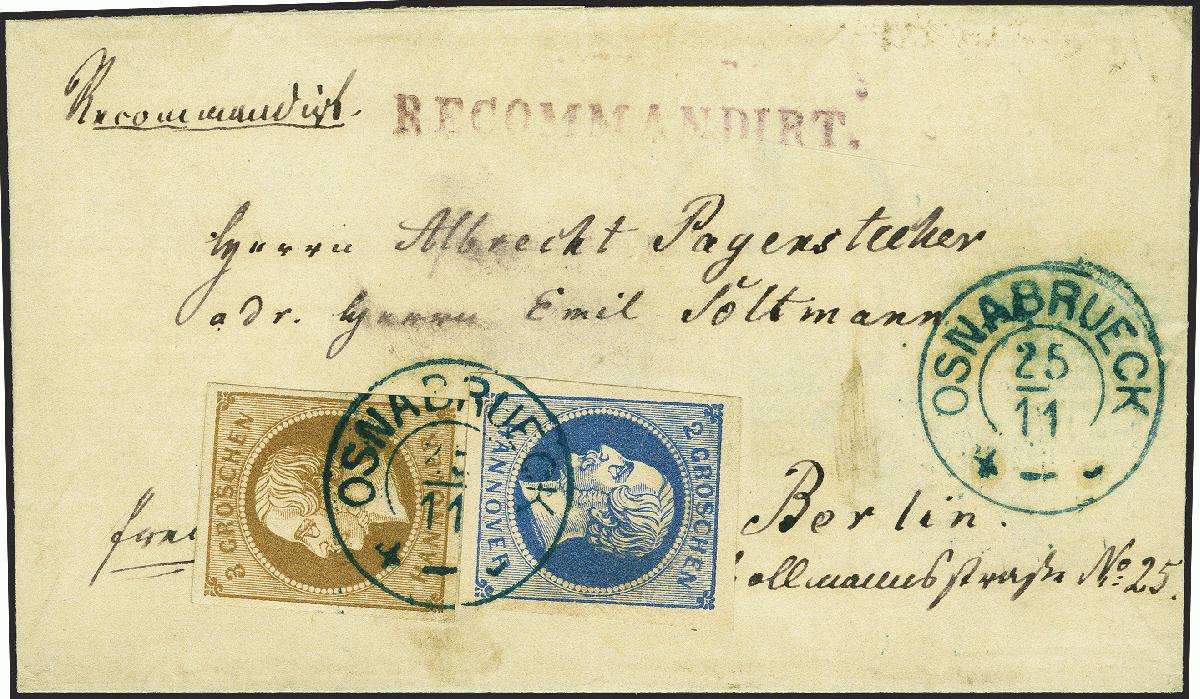 Recommandirt.
RECOMMANDIRT.
Herrn Albrecht Pagenstecher
adr. Herrn Emil Söltmann
OSNABRUECK
25
11
3 GROSCHEN
HANNOVER
OSNABRUECK
11
HANNOVER
2 GROSCHEN
Berlin.
ollmannsstraße No. 25.